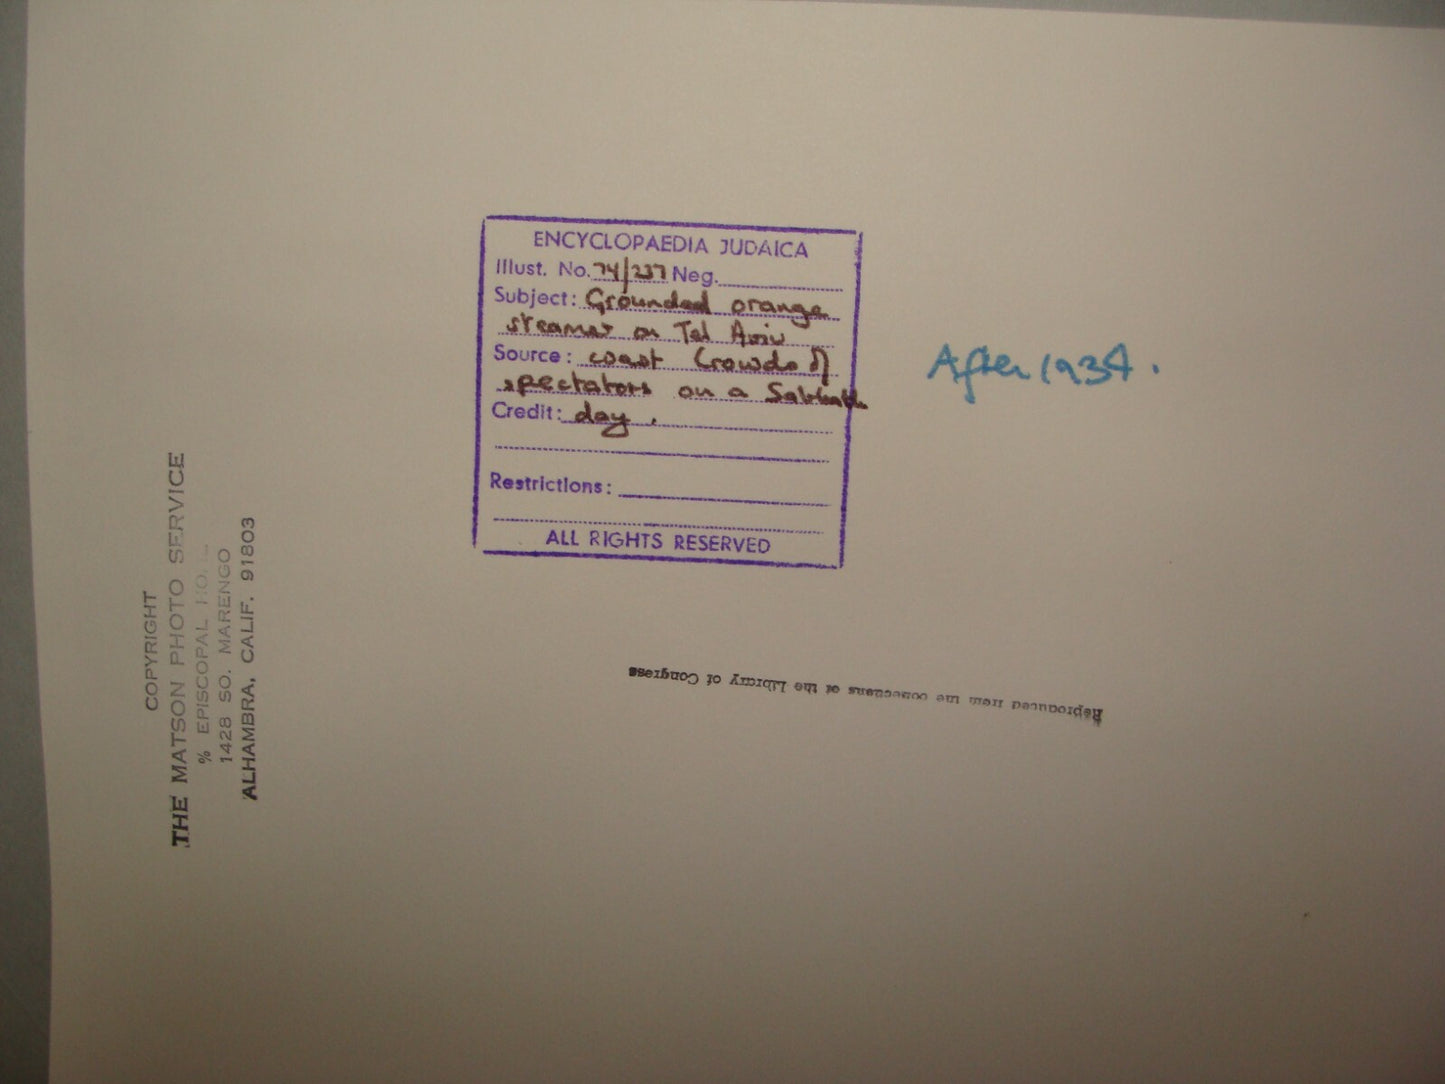 ENCYCLOPAEDIA JUDAICA
Illust. No. 74/237 Neg.
Subject: Grounded orange
steamer on Tel Aviv
Source: coast Crowds of
spectators on a Sabbath
Credit: day.
Restrictions:
ALL RIGHTS RESERVED
After 1934.
COPYRIGHT
THE MATSON PHOTO SERVICE
% EPISCOPAL HO
1428 SO. MARENGO
ALHAMBRA, CALIF. 91803
Reproduced from the collections of the Library of Congress